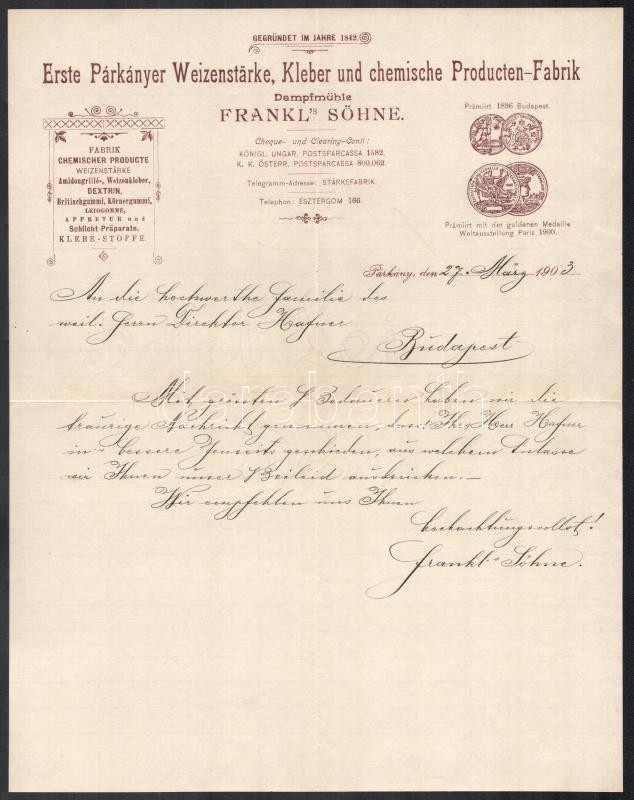 GEGRÜNDET IM JAHRE 1842.
Erste Párkányer Weizenstärke, Kleber und chemische Producten-Fabrik
Dampfmühle
FRANKL'S SÖHNE.
Cheque- und Clearing-Conti:
KÖNIGL. UNGAR. POSTSPARCASSA 1582.
K. K. ÖSTERR. POSTSPARCASSA 800,062.
Telegramm-Adresse: STÄRKEFABRIK.
Telephon: ESZTERGOM 166.
FABRIK
CHEMISCHER PRODUCTE
WEIZENSTÄRKE
Amidongrillé-, Weizenkleber,
DEXTRIN,
Britischgummi, Körnergummi,
LEIOGOMME,
APPRETUR und
Schlicht-Präparate.
KLEBE-STOFFE.
Prämiirt 1896 Budapest.
Prämiirt mit der goldenen Medaille
Weltausstellung Paris 1900.
Párkány, den 27. März 1903
An die hochwerthe Familie des
weil. Herrn Direktor Hafner
Budapest
Mit grössten Bedauern haben wir die
traurige Nachricht genommen, Herr Hafner
in's bessere Jenseits geschieden, aus welchem Anlasse
wir Ihnen unser Beileid ausdrücken.—
Wir empfehlen uns Ihnen
hochachtungsvollst!
Frankl's Söhne.
darabanth